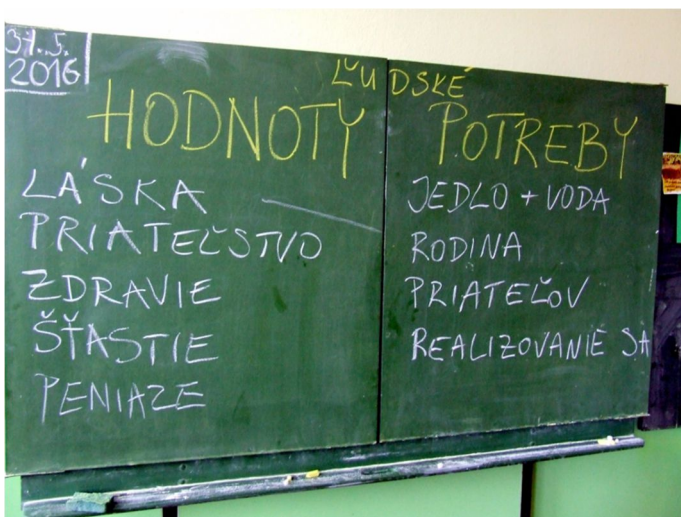 31.5.
2016
ĽUDSKÉ
HODNOTY
POTREBY
LÁSKA
PRIATEĽSTVO
ZDRAVIE
ŠŤASTIE
PENIAZE
JEDLO + VODA
RODINA
PRIATEĽOV
REALIZOVANIE SA